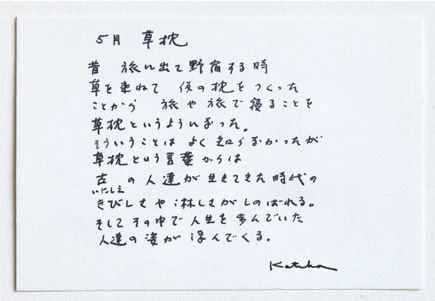 5月 草枕
昔 旅に出て野宿する時
草を束ねて 仮の枕をつくった
ことから 旅や旅で寝ることを
草枕というようになった。
そういうことは よく知らなかったが
草枕という言葉からは
古の人達が生きてきた時代の
いにしえ
きびしさや淋しさがしのばれる。
そしてその中で人生を歩んでいた
人達の姿が浮んでくる。